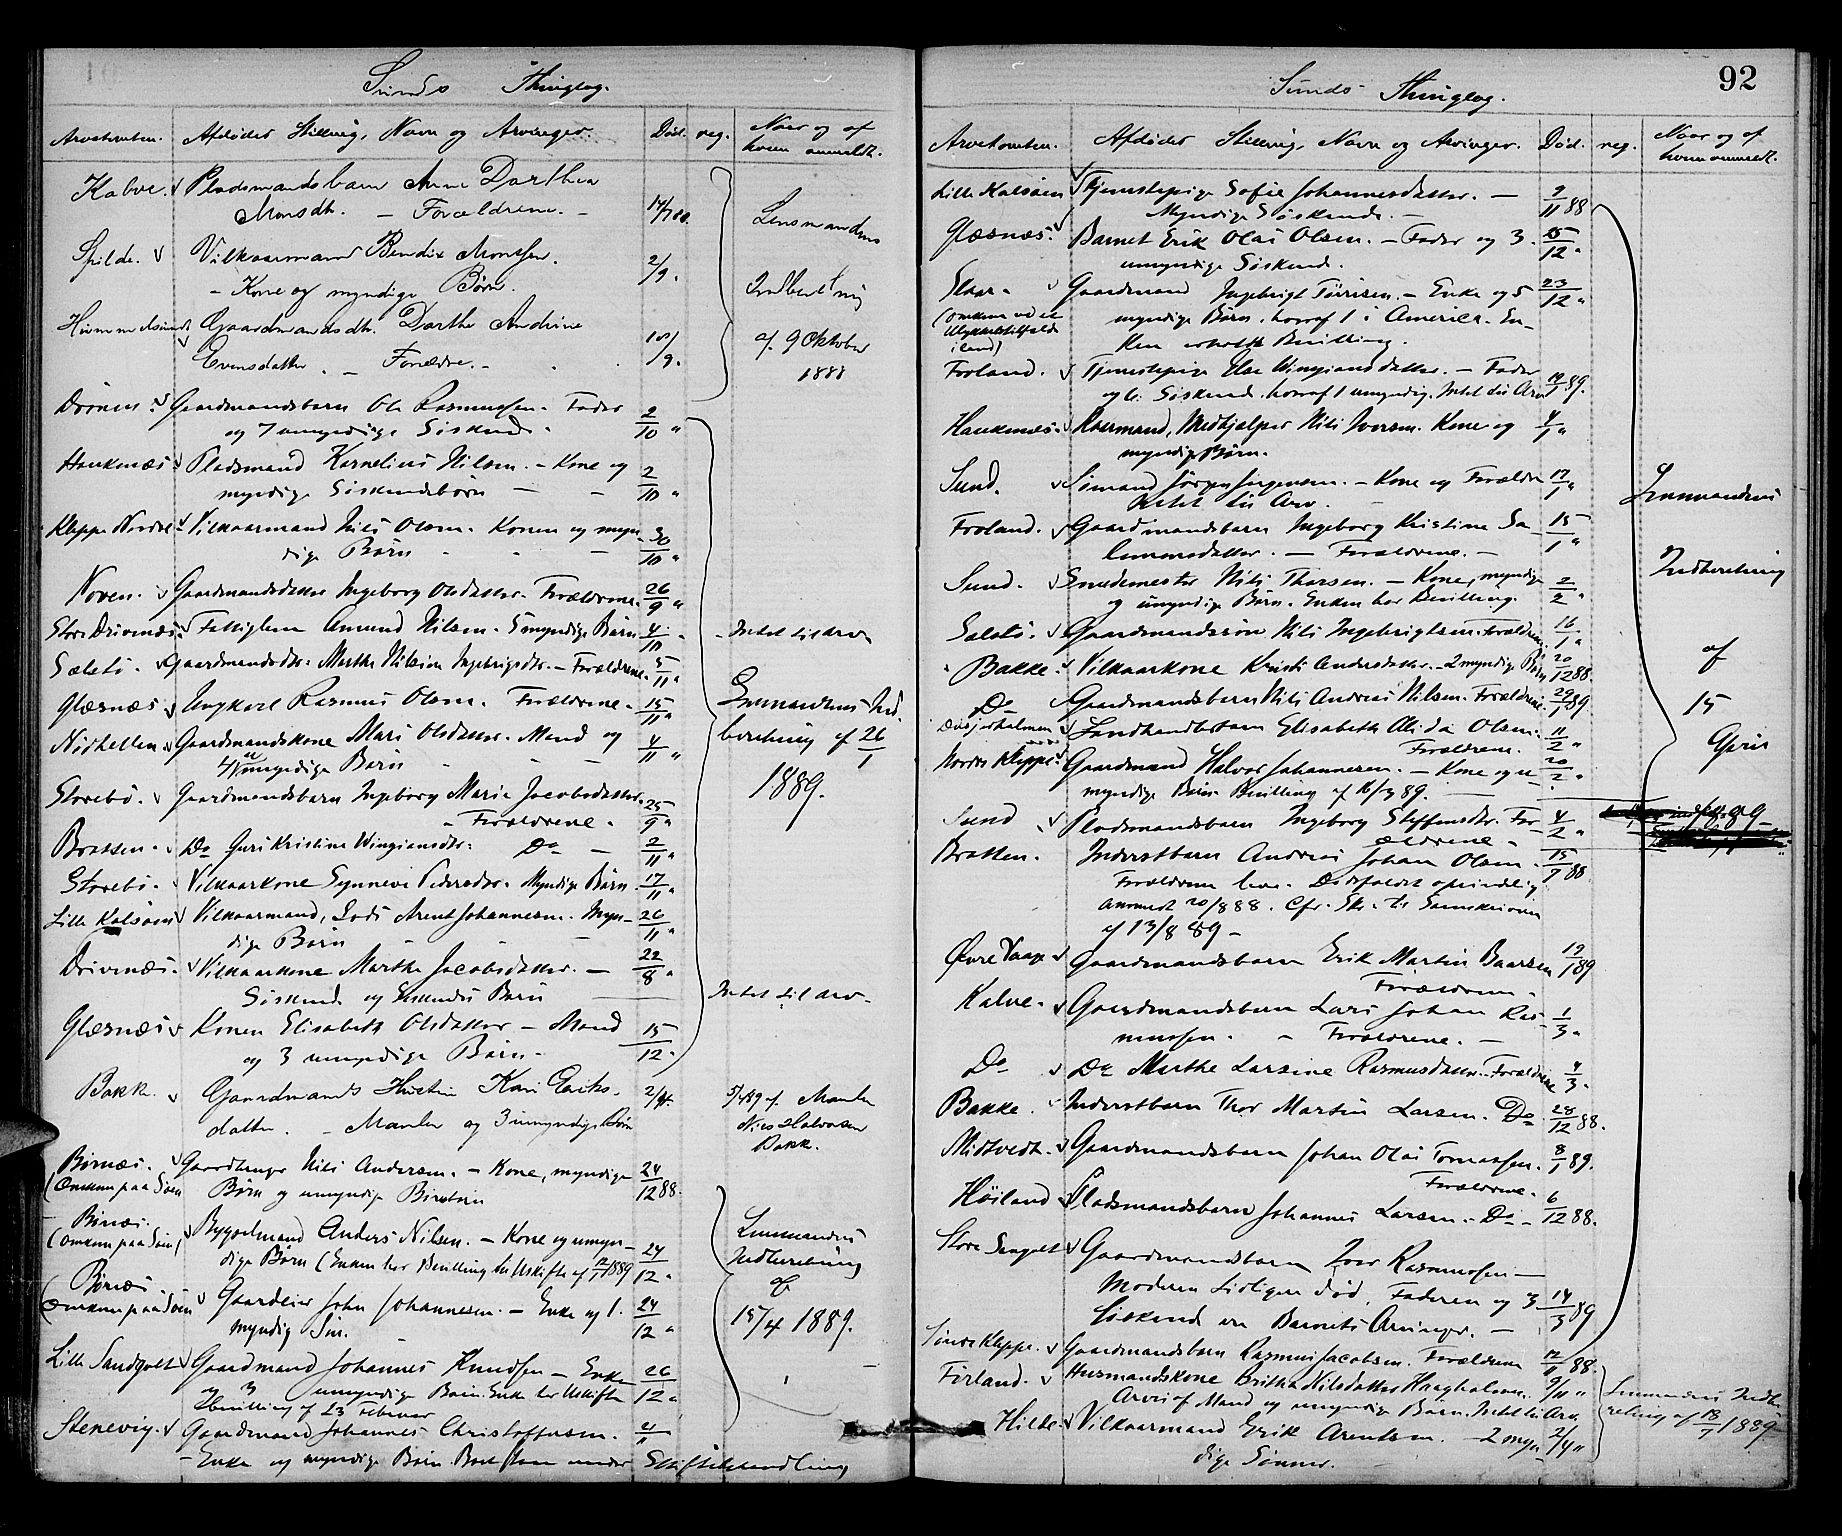 Sunds Thinglag.
Arvetomten. Afdødes Stilling, Navn og Arvinger. Død. reg. Naar og af hvem anmeldt.
Kalve. Pladsmandsbarn Anne Dorthea
Monsdtr. — Forældrene. — 14/7 88.
Spilde. Vilkaarmand Bendix Monssen.
— Kone og myndige Børn. 2/9.
Lensmandens
Indberetning
af 9 Oktober
1888
Gaardmandsdtr. Dorthe Andrine
Evensdatter. — Forældre. — 10/9.
Gaardmandsbarn Ole Rasmussen. Fader
og 7 umyndige Siskend. 2/10 "
Haukenæs. Pladsmand Kornelius Nilsen. — Kone og
myndige Siskendebørn — — 2/10 "
Kleppe Nordre Vilkaarmand Nils Olsen. Konen og myn-
dige Børn 30/10 "
Noven. Gaardmandsdatter Ingeborg Olsdatter. Forældrene. 26/9 "
Store Drivenæs. Fattiglem Amund Nilsen. 5 myndige Børn 4/10 " Intet til Arv
Sælstø. Gaardmandsdtr. Marthe Nilsine Ingebrigsdtr. — Forældrene. 5/11 "
Glæsnæs Ungkarl Rasmus Olsen. Forældrene. 15/11 "
Lensmandens Ind-
beretning af 26/1
1889.
Nødhellen Gaardmandskone Mari Olsdatter. Mand og
4 umyndige Børn 4/11 "
Storebø. Gaardmandsbarn Ingeborg Marie Jacobsdatter.
— Forældrene. 25/9 "
Bratten. Do Guri Kristine Wingiansdtr. Do — 2/11 "
Storebø. Vilkaarkone Synneve Pedersdtr. Myndige Børn 17/11 "
Lille Kalsøen Vilkaarmand, Lods Arent Johannesen. Myn-
dige Børn 26/11 "
Drivenæs. Vilkaarkone Marthe Jacobsdatter. —
Siskend og Siskendes Børn 22/8 " Intet til Arv
Glæsnæs Konen Elisabeth Olsdatter — Mand
og 3 umyndige Børn. 15/12 "
Bakk. Gaardmands Hustru Kari Eriks-
datter. — Manden og 3 umyndige Børn 2/4.
5/4 89 af Manden
Nils Halvorsen
Bakk.
Børnæs. Gaardbruger Nils Andersen. — Kone, myndige
(Omkom paa Søen Børn og umyndige Børnebørn 24/12 88.
Børnæs. Bygselmand Anders Nilsen. — Kone og umyn-
(Omkom paa Søen) dige Børn (Enken har Bevilling til Uskifte af 12/1 1889 24/12 "
Børnæs. Gaardeier John Johannesen. — Enke og 1
(Omkom paa Søen myndig Søn. 24/12 "
Lensmandens
Indberetning
af
15/4 1889.
Lille Sandtvet Gaardmand Johannes Knudsen — Enke
og 3 umyndige Børn. Enke har Uskifte
Bevilling af 23 Februar 26/12 "
Stenevig. Gaardmand Johannes Christoffersen.
— Enke og myndige Børn. under Skiftebehandling

Sunds Thinglag. 92
Arvetomten. Afdødes Stilling, Navn og Arvinger. Død. reg. Naar og af hvem anmeldt.
Lille Kalsøen Tjenestepige Sofie Johannesdatter. —
Myndige Siskende. — 9/11 88
Glæsnæs. Barnet Erik Olai Olsen. — Fader og 3
umyndige Siskend. 15/12 "
Gaardmand Ingebrigt — Enke og 5
myndige Børn, hvoraf 1 i America. En-
ken erholdt Bevilling. 23/12 "
(omkom ved et
Ulykkestilfælde
iland)
Forland. Tjenestepige Else Wingiansdatter. — Fader
og 6 Siskend, hvoraf 1 umyndig. Intet til Arv 89.
Haukenæs. Medhjelper Nils Iversen. Kone og
myndige Børn. 4/1 "
Sund. Sømand Jørgen Jørgensen. — Kone og Forældre
Intet til Arv. 17/1 "
Lensmandens
Indberetning
af
15
April
Froland. Gaardmandsbarn Ingeborg Kristine Sa-
lomonsdatter. — Forældrene. — 15/1 "
Sund. Smedemester Nils Thorsen. — Kone, myndige
og umyndige Børn. Enken har Bevilling. 2/2 "
Sælstø. Gaardmandssøn Nils Ingebrigtsen. Forældrene. 16/1 "
Bakke. Vilkaarkone Kristi Andersdatter. — 2 myndige Børn 20/12 88.
Do Gaardmandsbarn Nils Andreas Nilsen. Forældrene 29/1 89.
Landhandlerbarn Elisabeth Alida Olsen.
Forældrene. 11/2 "
Nordre Kleppe Gaardmand Halvor Johannesen. — Kone og u-
myndige Børn. Bevilling af 16/3 89. 20/2 "
Sund Pladsmandsbarn Ingeborg Steffensdtr. For-
ældrene. 4/2 "
Bratten. Inderstbarn Andreas Johan Olsen.
Forældrene leve. Dødsfaldet oprindelig
anmeldt 20/8 88. Cfr. Skr. til Sorenskriveren
af 13/8 89 — 15/7 88
Øvre Vaage Gaardmandsbarn Erik Martin Baarsen
Forældrene. 19/1 89
Kalve. Gaardmandsbarn Lars Johan Ras-
mussen. — Forældrene. — 1/3 "
Do Do Marthe Larsine Rasmusdatter. Forældrene 4/3 "
Bakke. Inderstbarn Thor Martin Larsen. Do 28/12 88.
Midtvedt. Gaardmandsbarn Johan Olai Tomassen.
Forældrene. 8/1 89.
Høiland Pladsmandsbarn Johannes Larsen. — Do — 6/12 88.
Store Gaardmandsbarn Iver Rasmussen —
Moderen tidligere død, Faderen og 3
Siskend er Barnets Arvinger. — 14/3 89
Søndre Kleppe. Gaardmandsbarn Rasmus Jacobsen. Forældrene 12/11 88.
Forland. Husmandskone Britha Nilsdatter Haagholmen. 9/11 "
Arves af Mand og umyndige Børn. Intet til Arv.
Hilde Vilkaarmand Erik Arentsen. — 2 myn- 2/4 "
dige Sønner.
Lensmandens Indbe-
retning af 18/7 1889